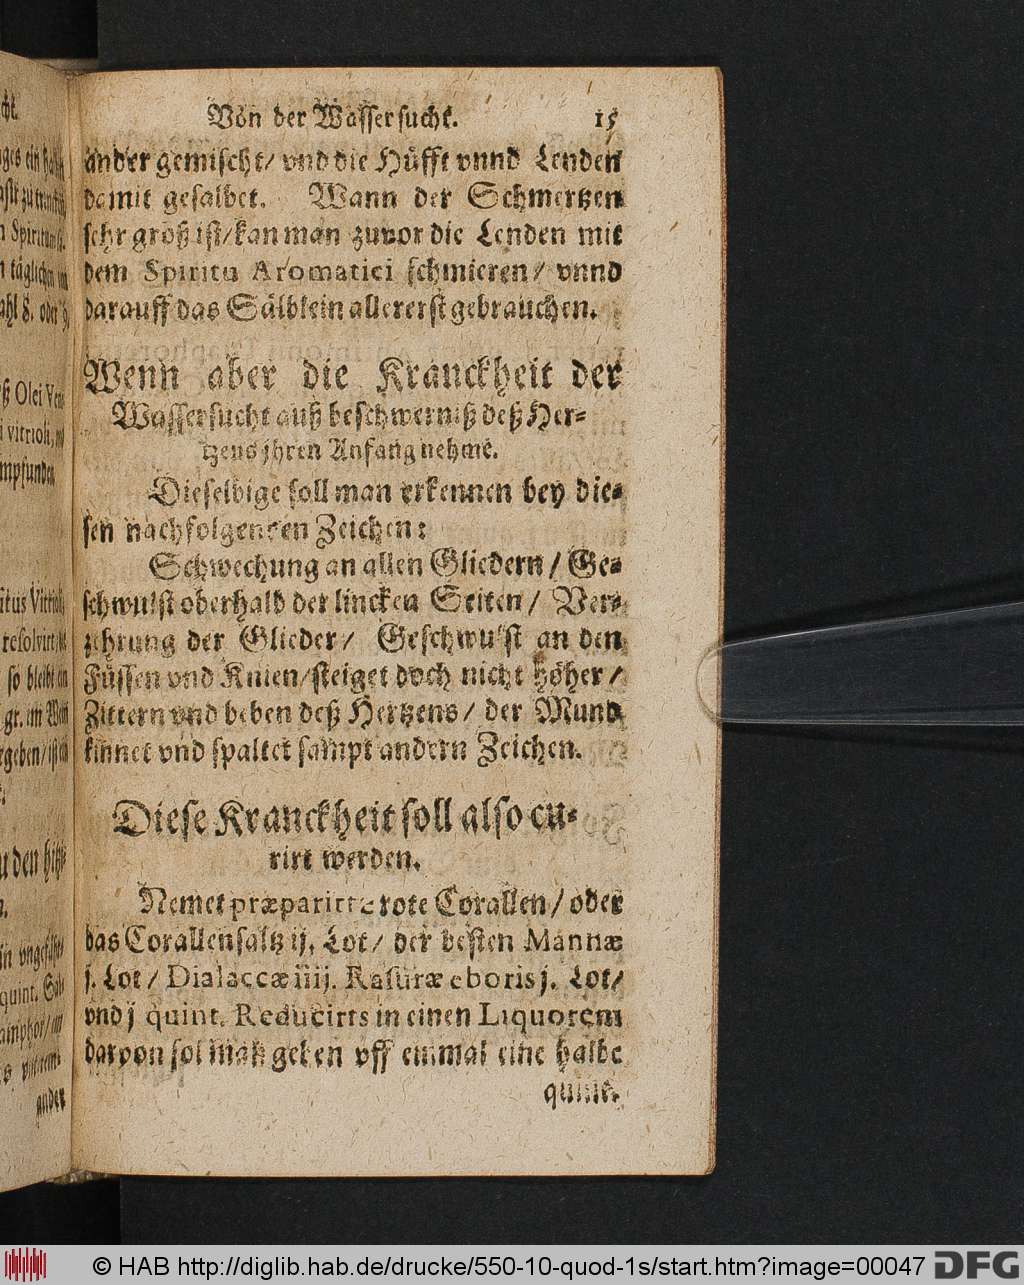 Von der Wassersucht. 15
ander gemischt/ vnd die Hüfft vnnd Lenden
damit gesalbet. Wann der Schmertzen
sehr groß ist/ kan man zuvor die Lenden mit
dem Spiritu Aromatici schmieren/ vnnd
darauff das Sälblein allererst gebrauchen.
Wenn aber die Kranckheit der
Wassersucht auß beschwerniß deß Her-
tzens jhren Anfang nehme.
Dieselbige soll man erkennen bey die-
sen nachfolgenden Zeichen:
Schwechung an allen Gliedern/ Ge-
schwulst oberhalb der lincken Seiten/ Ver-
zehrung der Glieder/ Geschwulst an den
Füssen vnd Knien/ steiget doch nicht höher/
Zittern vnd beben deß Hertzens/ der Mund
rinnet vnd spaltet sampt andern Zeichen.
Diese Kranckheit soll also cu-
rirt werden.
Nemet præparirte rote Corallen/ oder
das Corallensaltz ij. Lot/ der besten Mannæ
j. Lot/ Dialaccæ iiij. Rasuræ eboris j. Lot/
vnd j quint. Reducirts in einen Liquorem
darvon sol man geben vff einmal eine halbe
quint.
ander
© HAB http://diglib.hab.de/drucke/550-10-quod-1s/start.htm?image=00047
DFG